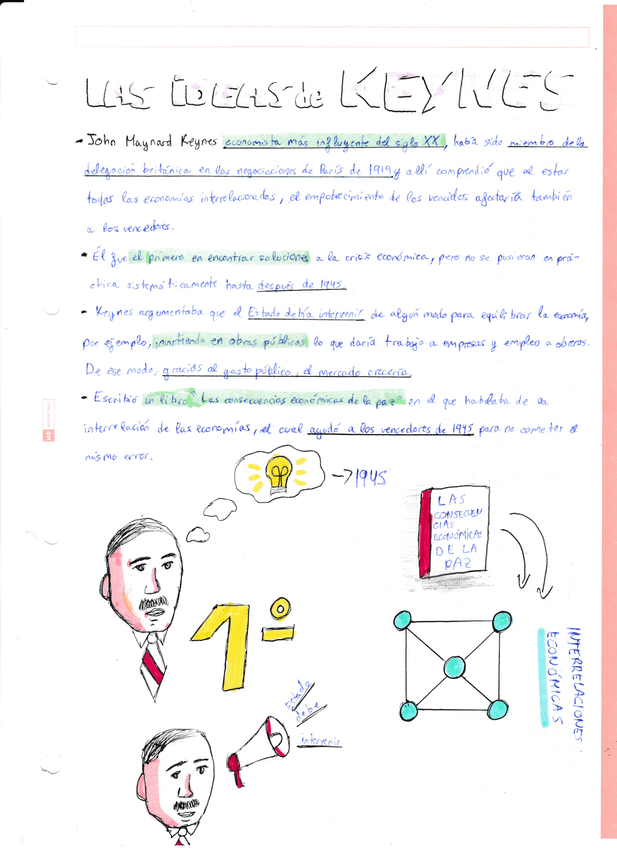 LAS IDEAS de KEYNES
- John Maynard Keynes economista más influyente del siglo XX, había sido miembro de la
delegación británica en las negociaciones de París de 1919 y allí comprendió que al estar
todas las economías interrelacionadas, el empobrecimiento de los vencidos afectaría también
a los vencedores.
- Él fue el primero en encontrar soluciones a la crisis económica, pero no se pusieron en prá-
ctica sistemáticamente hasta después de 1945.
- Keynes argumentaba que el Estado debía intervenir de algún modo para equilibrar la economía,
por ejemplo, invirtiendo en obras públicas lo que daría trabajo a empresas y empleo a obreros.
De ese modo, gracias al gasto público, el mercado crecería.
- Escribió un libro "Las consecuencias económicas de la paz" en el que hablaba de la
interrelación de las economías, el cual ayudó a los vencedores de 1945 para no cometer el
mismo error.
→ 1945
LAS
CONSECUEN
CIAS
ECONÓMICAS
DE LA
PAZ
1º
INTERRELACIONES
ECONÓMICAS
Estado
debe
intervenir